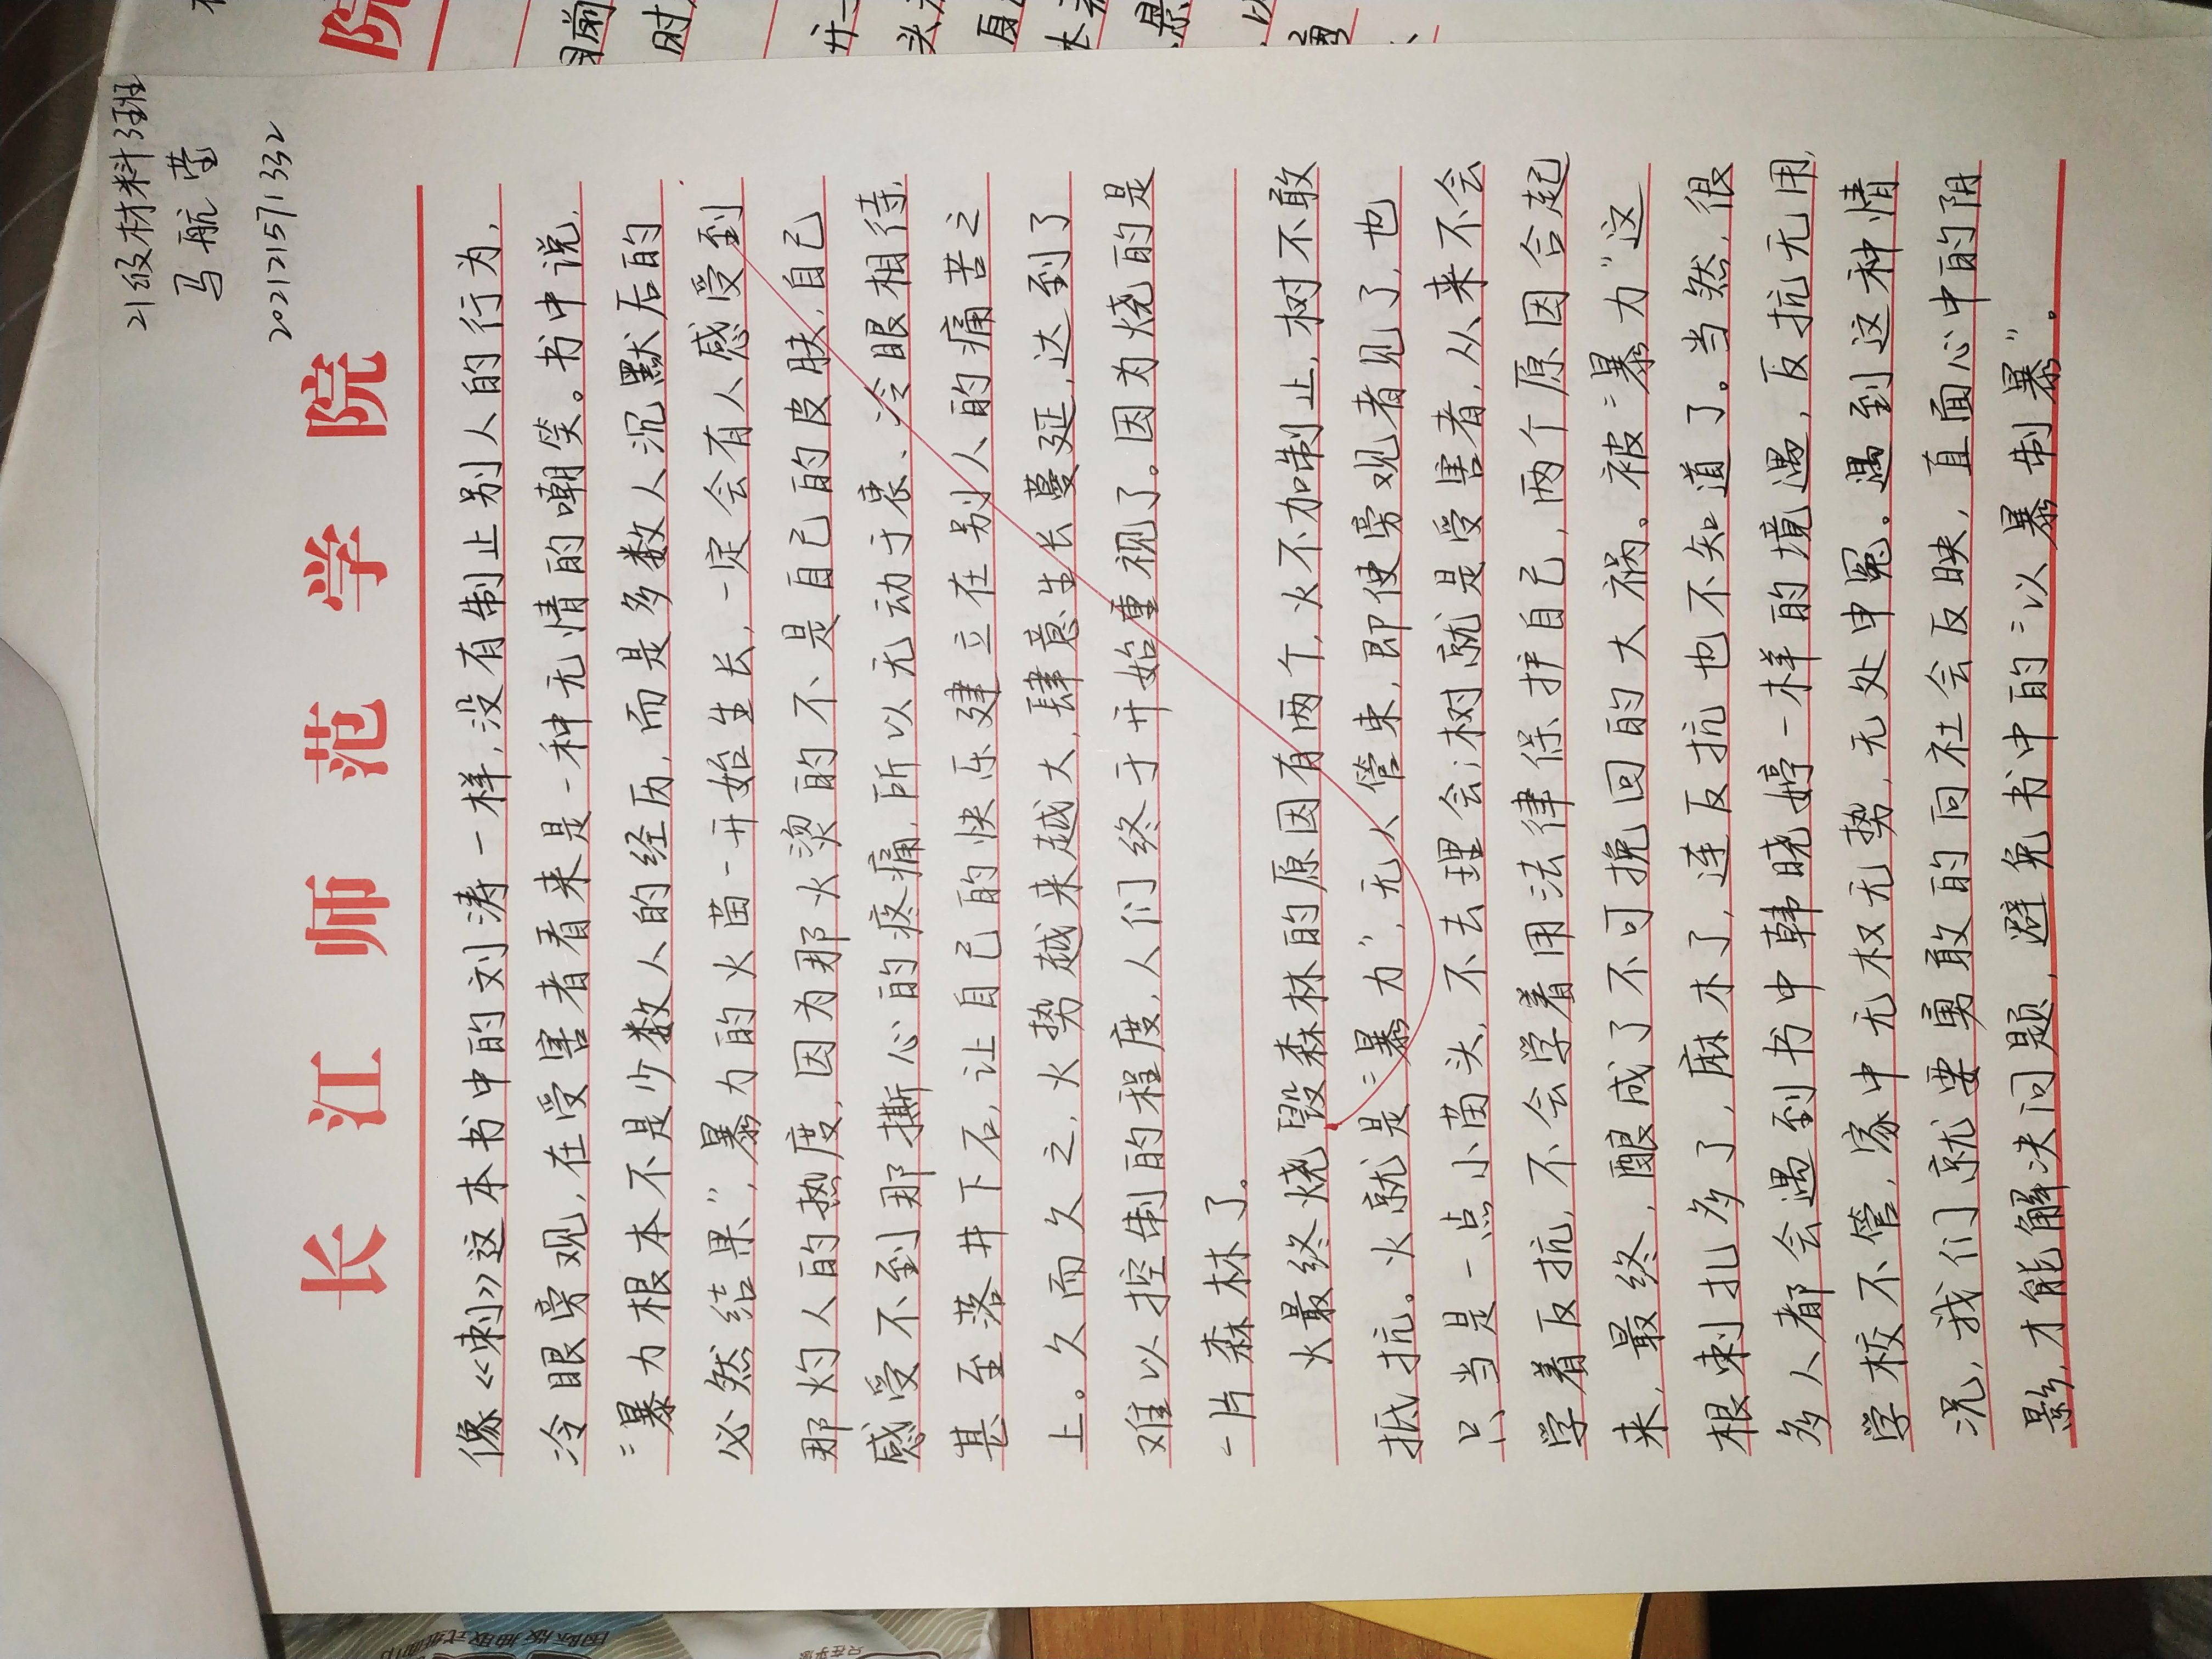 21级材料3班
马航莹
202121571332
长江师范学院
像《刺》这本书中的刘涛一样,没有制止别人的行为,
冷眼旁观,在受害者看来是一种无情的嘲笑。书中说,
“暴力根本不是少数人的经历,而是多数人沉默后的
必然结果”,暴力的火苗一开始生长,一定会有人感受到
那灼人的热度,因为那火烫的不是自己的皮肤,自己
感受不到那撕心的疼痛,所以无动于衷、冷眼相待,
甚至落井下石,让自己的快乐建立在别人的痛苦之
上。久而久之,火势越来越大,肆意生长蔓延,达到了
难以控制的程度,人们终于开始重视了。因为烧的是
一片森林了。
火最终烧毁森林的原因有两个,火不加制止,树不敢
抵抗。火就是“暴力”,无人管束,即使旁观者见了,也
只当是一点小苗头,不去理会;树就是受害者,从来不会
学着反抗,不会学着用法律保护自己,两个原因合起
来,最终,酿成了不可挽回的大祸。被“暴力”这
根刺扎多了,麻木了,连反抗也不知道了。当然,很
多人都会遇到书中韩晓婷一样的境遇,反抗无用,
学校不管,家中无权无势,无处申冤。遇到这种情
况,我们就要勇敢的向社会反映,直面心中的阴
影,才能解决问题,避免书中的“以暴制暴”。
院
国际版抽取式纸面巾